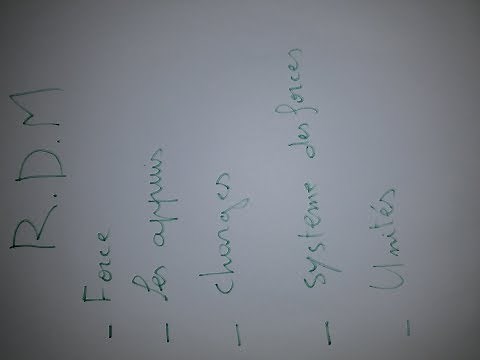 R.D.M
- Force
- Les appuis
- charges
- système des forces
- Unités